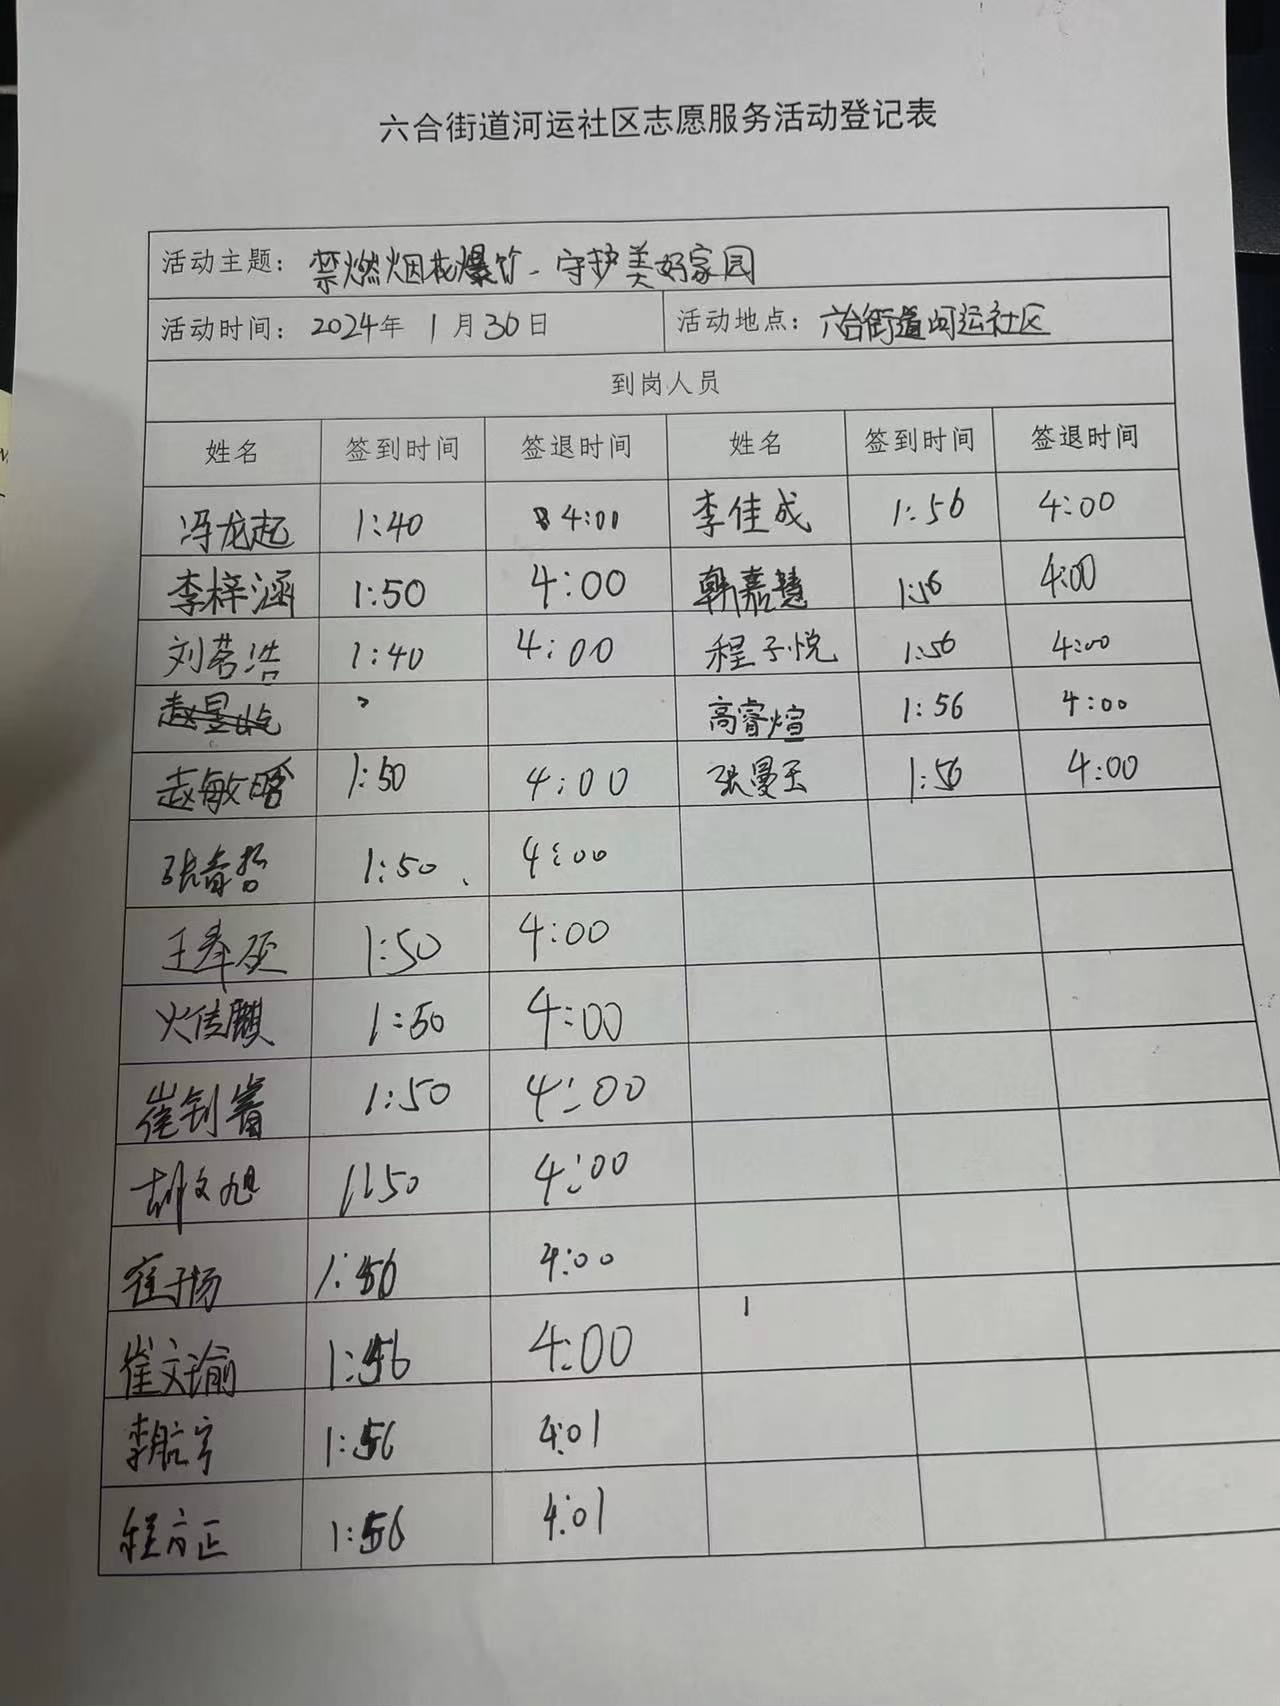 六合街道河运社区志愿服务活动登记表
活动主题：禁燃烟花爆竹、守护美好家园
活动时间：2024年 1月30日 活动地点：六合街道河运社区
到岗人员
姓名 签到时间 签退时间 姓名 签到时间 签退时间
冯龙起 1:40 4:00 李佳成 1:56 4:00
李梓涵 1:50 4:00 韩嘉慧 1:56 4:00
刘茗浩 1:40 4:00 程子悦 1:56 4:00
高睿煊 1:56 4:00
赵敏晗 1:50 4:00 张曼玉 1:56 4:00
张春哲 1:50 4:00
王奉硕 1:50 4:00
火佳麒 1:50 4:00
崔钊睿 1:50 4:00
胡文旭 1:50 4:00
崔子扬 1:56 4:00
崔文瑜 1:56 4:00
李航宇 1:56 4:01
程方正 1:56 4:01